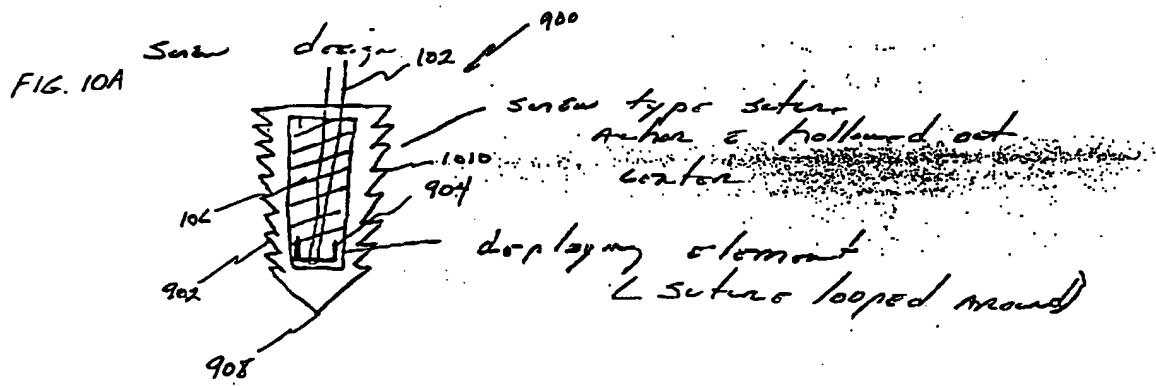 900
Screw design
102
FIG. 10A
screw type suture
Anchor c̄ hollowed out
center
1010
904
106
deploying element
(suture looped around)
902
908